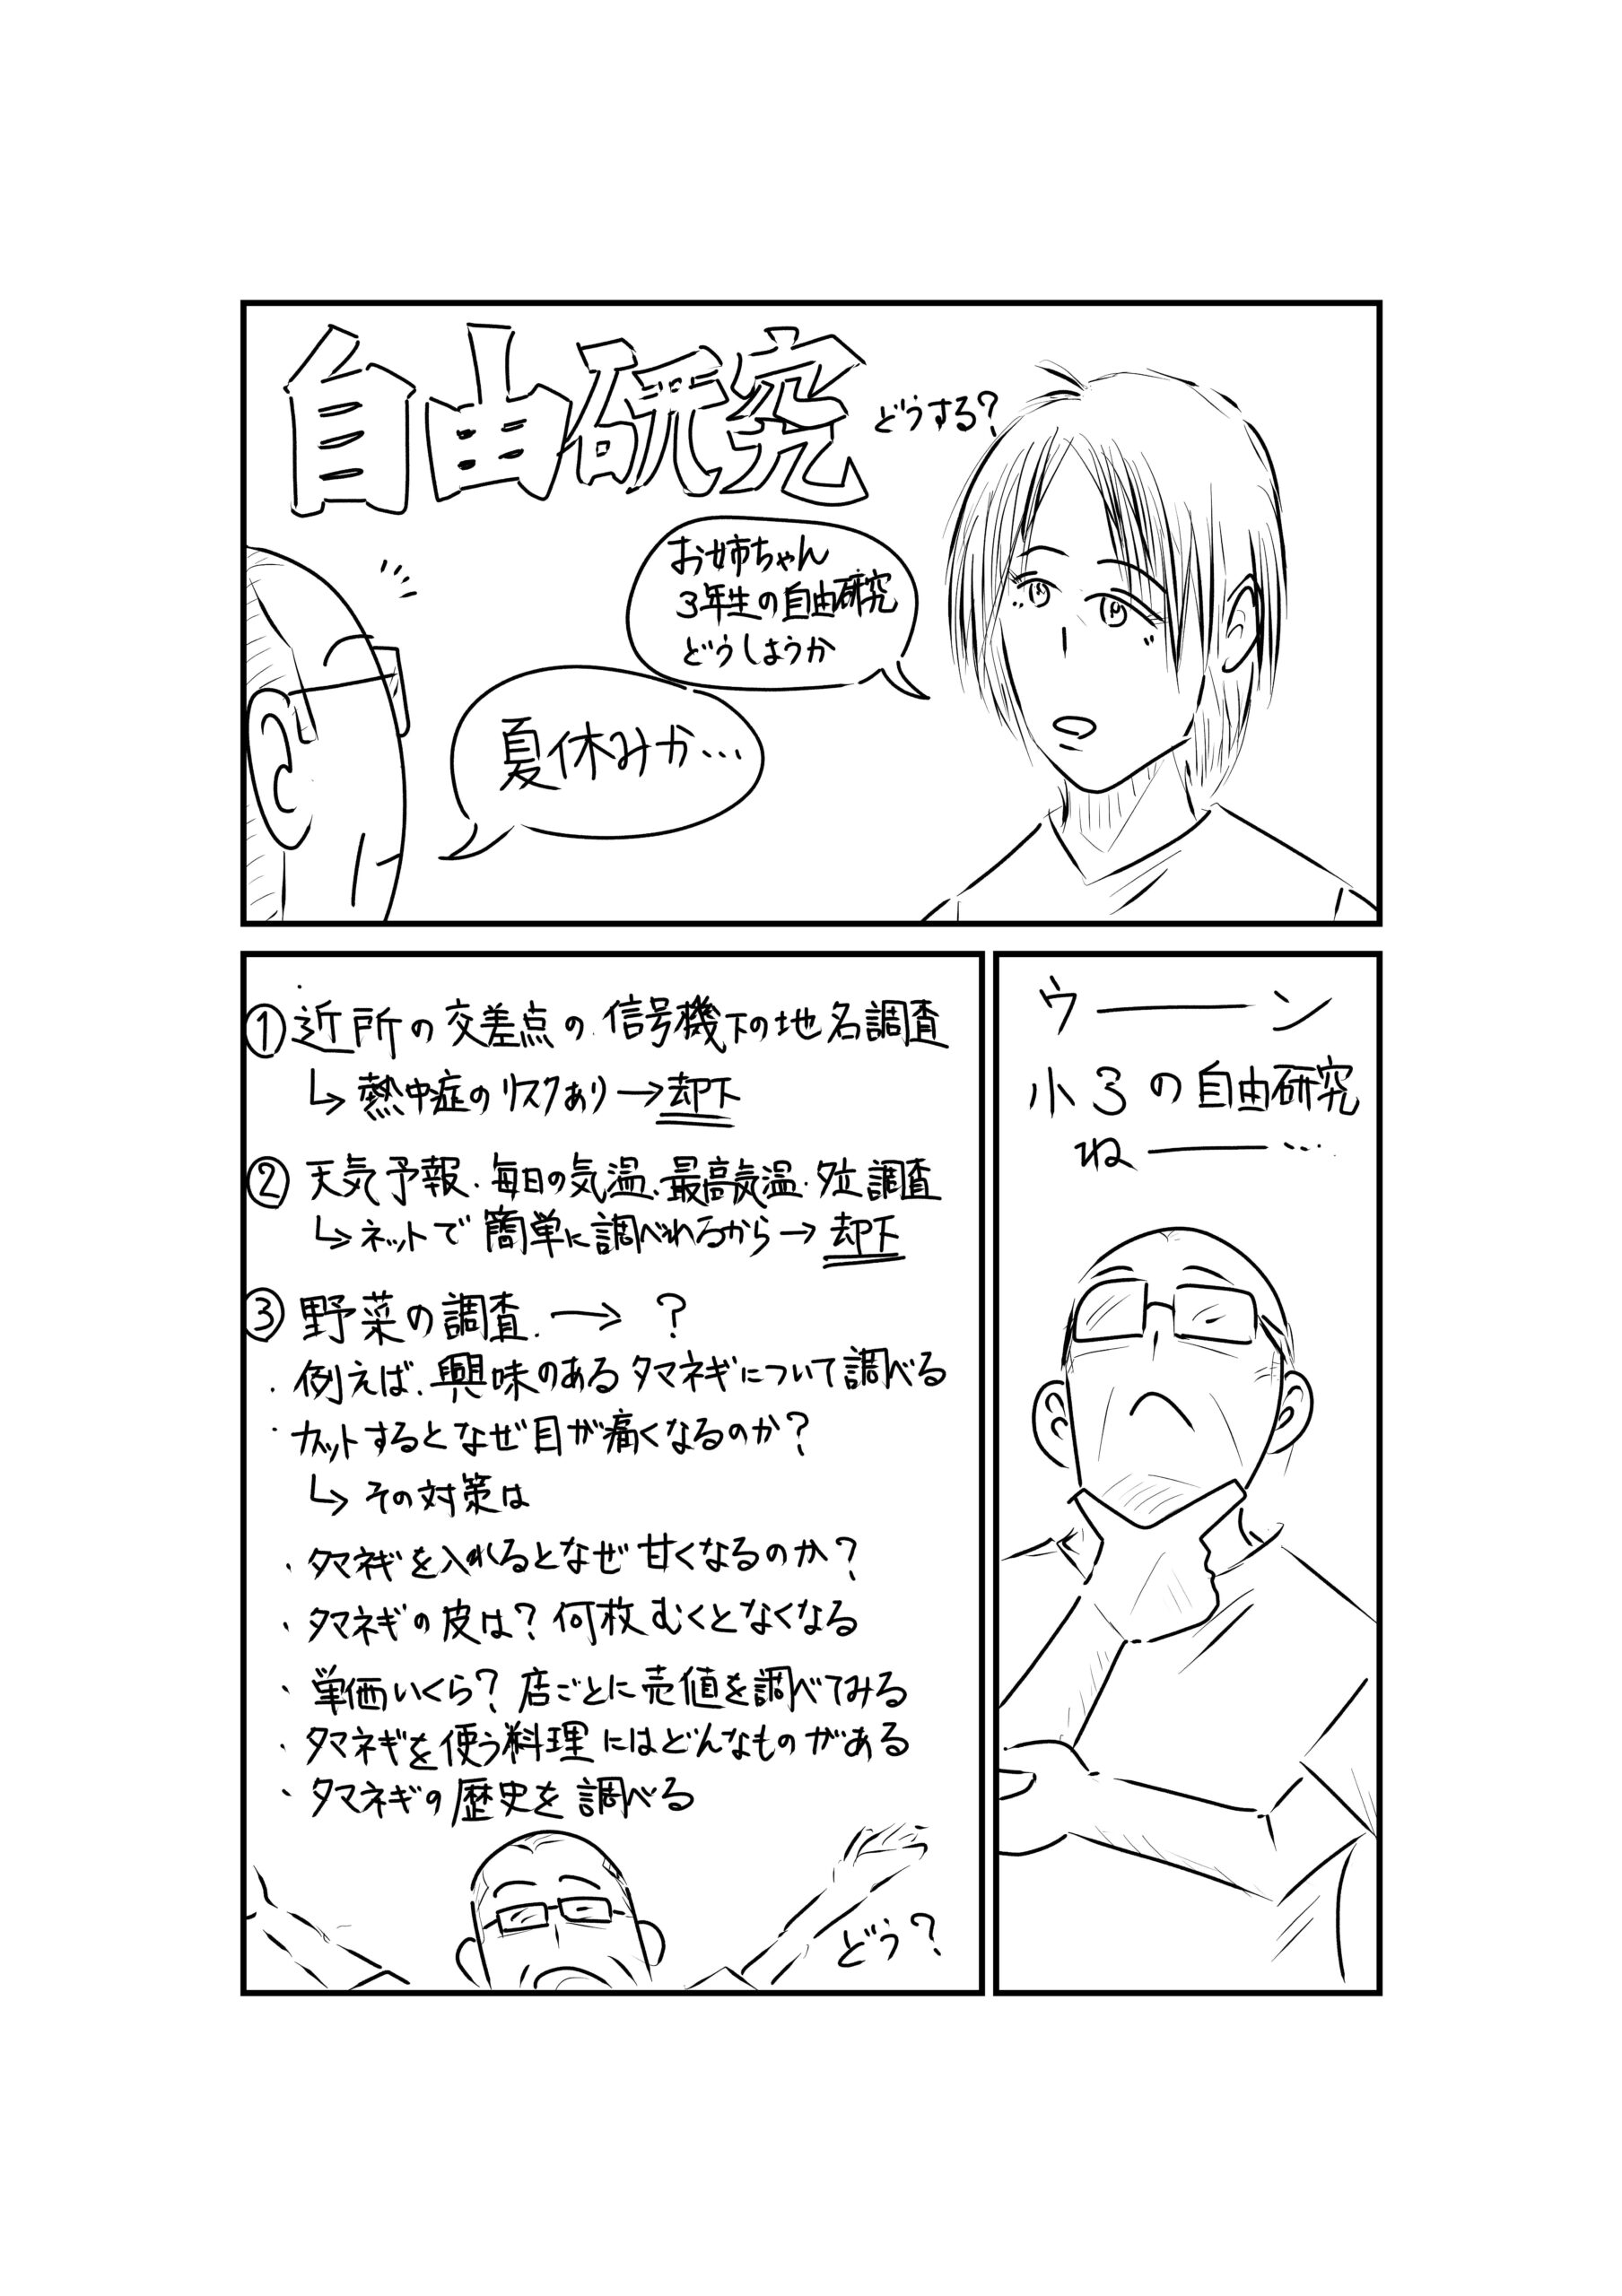 自由研究
どうする?
お姉ちゃん
3年生の自由研究
どうしようか
夏休みか…
ウーーン
小3の自由研究
ねー…
①近所の交差点の信号機下の地名調査
↳熱中症のリスクあり→却下
②天気予報、毎日の気温、最高気温、調査
↳ネットで簡単に調べれるから→却下
③野菜の調査→?
・例えば、興味のあるタマネギについて調べる
・カットするとなぜ目が痛くなるのか?
↳その対策は
・タマネギを入れるとなぜ甘くなるのか?
・タマネギの皮は?何枚むくとなくなる
・単価いくら?店ごとに売値を調べてみる
・タマネギを使う料理にはどんなものがある
・タマネギの歴史を調べる
どう?